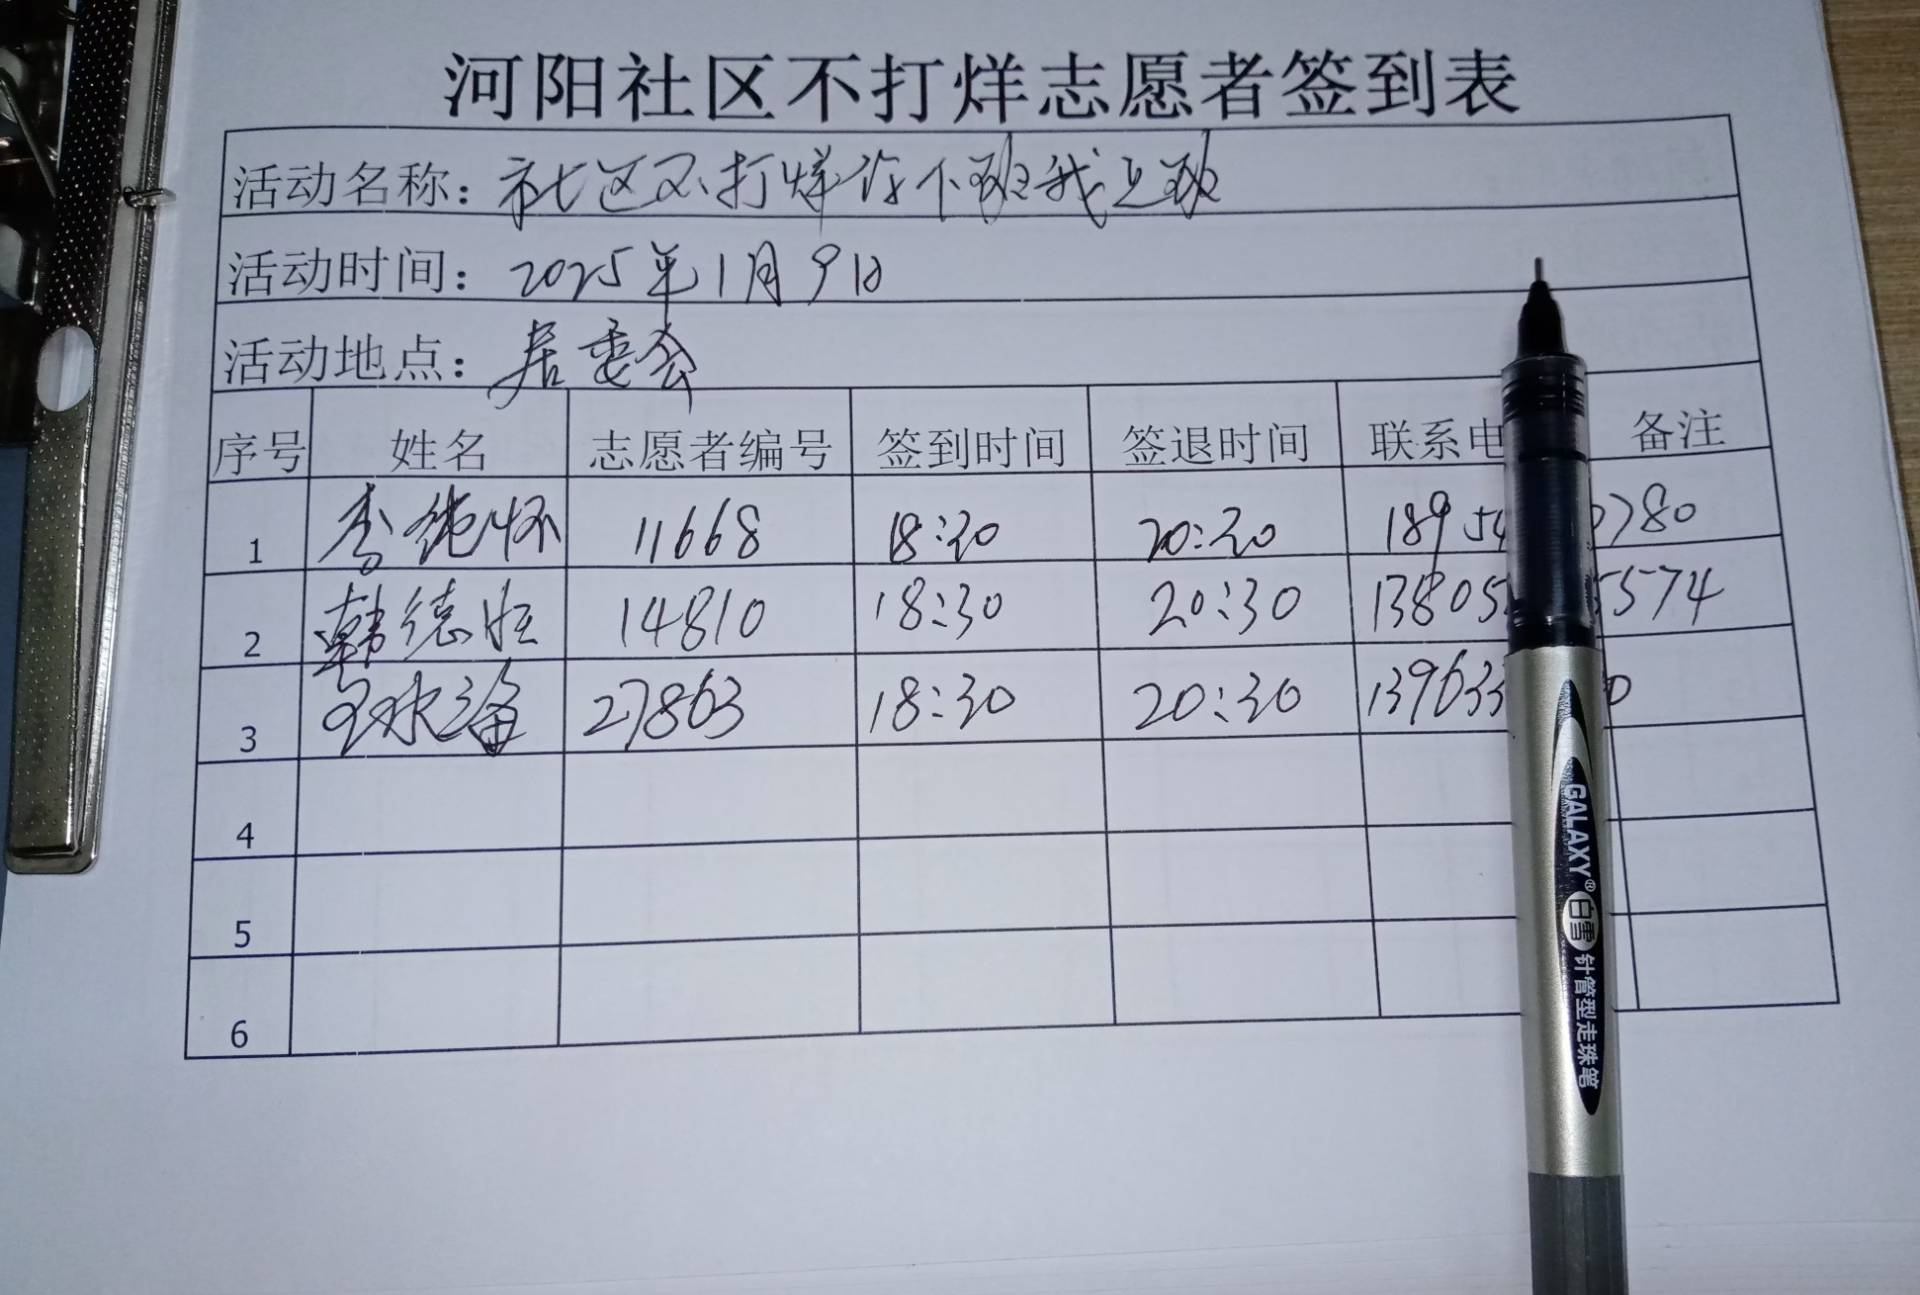 河阳社区不打烊志愿者签到表
活动名称：社区不打烊你下班我上班
活动时间：2025年1月9日
活动地点：居委会
序号 姓名 志愿者编号 签到时间 签退时间 联系电 备注
1 李纯怀 11668 18:30 20:30 18954 0780
2 韩德胜 14810 18:30 20:30 13805 5574
3 27863 18:30 20:30 139633 0
4
5
6
GALAXY® 白雪 针管型走珠笔